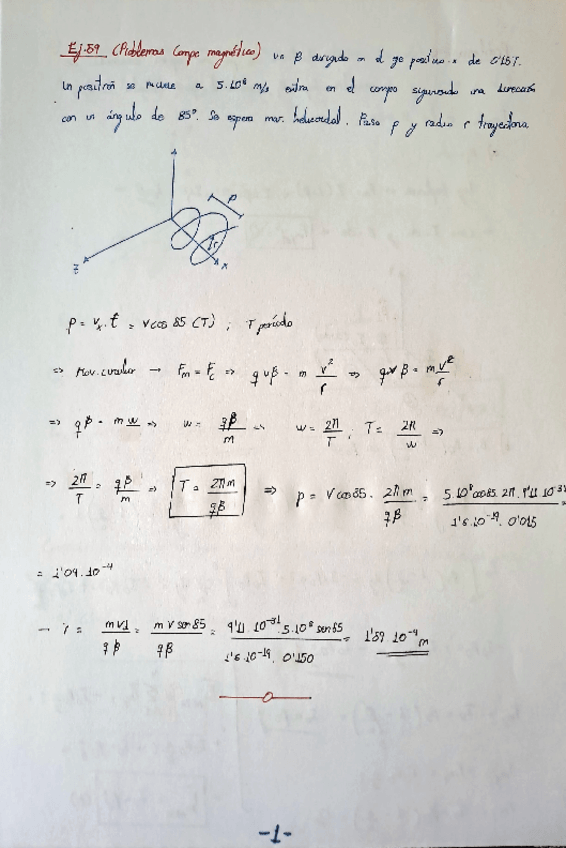 Ej.59 (Problemas Campo magnético) un β dirigido en el eje positivo x de 0'15T.
Un positrón se mueve a 5.10⁶ m/s entra en el campo siguiendo una dirección
con un ángulo de 85º. Se espera mov. helicoidal. Paso p y radio r trayectoria
P
r
z
x
p = vₓ.t = v cos 85 (T) ; T período
⇒ Mov. circular → Fm = Fc ⇒ q v β = m v²/r ⇒ q v β = m v²/r
⇒ qβ = m w ⇒ w = qβ/m ⇒ w = 2π/T ; T = 2π/w ⇒
⇒ 2π/T = qβ/m ⇒ T = 2πm/qβ ⇒ p = v cos 85 . 2πm/qβ = 5.10⁶ cos 85. 2π. 9'11 10⁻³¹/1'6.10⁻¹⁹. 0'015 =
= 1'04.10⁻⁴
→ r = m v⊥/qβ = m v sen 85/qβ = 9'11. 10⁻³¹. 5.10⁶ sen 85/1'6.10⁻¹⁹. 0'150 = 1'89 10⁻⁴ m
-1-